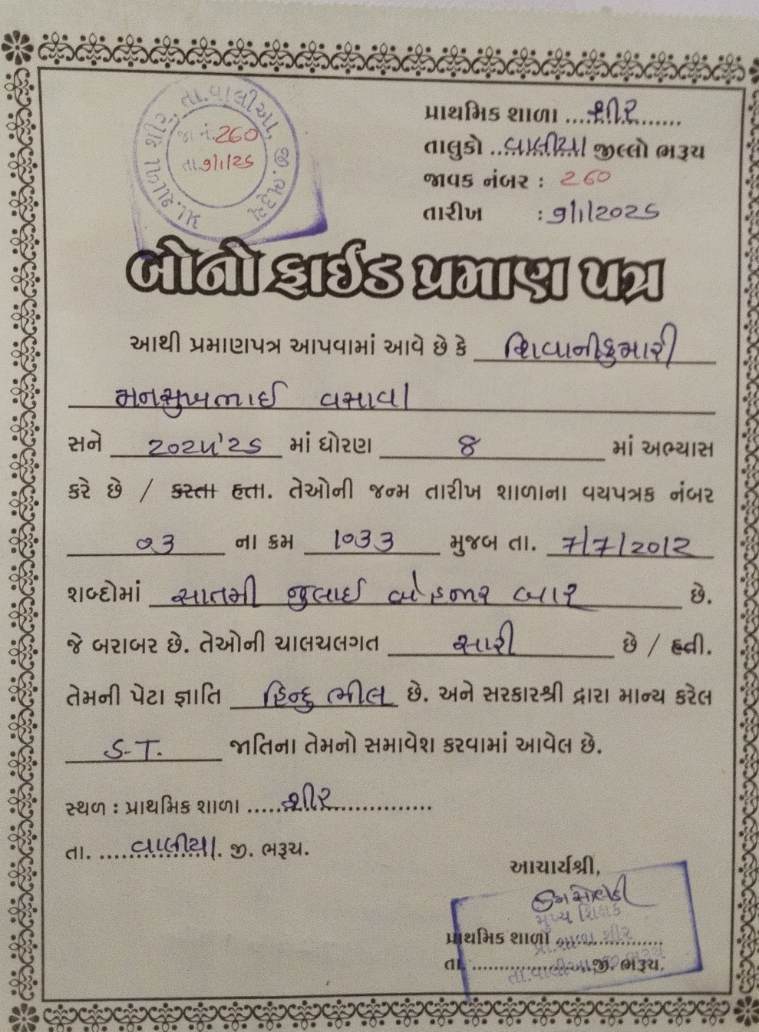 પ્રા. શાળા શીર, તા. વાલીયા, જી. ભરૂચ
જા નં. 260
તા. 9/1/25
પ્રાથમિક શાળા ..શીર..
તાલુકો ..વાલીયા જીલ્લો ભરૂચ
જાવક નંબર : 260
તારીખ : 9/1/2025
બોનોફાઈડ પ્રમાણ પત્ર
આથી પ્રમાણપત્ર આપવામાં આવે છે કે શિવાનીકુમારી
મનસુખભાઈ વસાવા
સને 202૫'25 માં ધોરણ 8 માં અભ્યાસ
કરે છે / કરતા હતા. તેઓની જન્મ તારીખ શાળાના વયપત્રક નંબર
૦3 ના ક્રમ 1033 મુજબ તા. 7/7/2012
શબ્દોમાં સાતમી જુલાઈ બે હજાર બાર છે.
જે બરાબર છે. તેઓની ચાલચલગત સારી છે / હતી.
તેમની પેટા જ્ઞાતિ હિન્દુ ભીલ છે. અને સરકારશ્રી દ્વારા માન્ય કરેલ
S.T. જાતિના તેમનો સમાવેશ કરવામાં આવેલ છે.
સ્થળ : પ્રાથમિક શાળા ....શીર....
તા. ....વાલીયા. જી. ભરૂચ.
આચાર્યશ્રી,
મુખ્ય શિક્ષક
પ્રાથમિક શાળા ....
પ્રા. શાળા શીર
તા. .... જી. ભરૂચ.